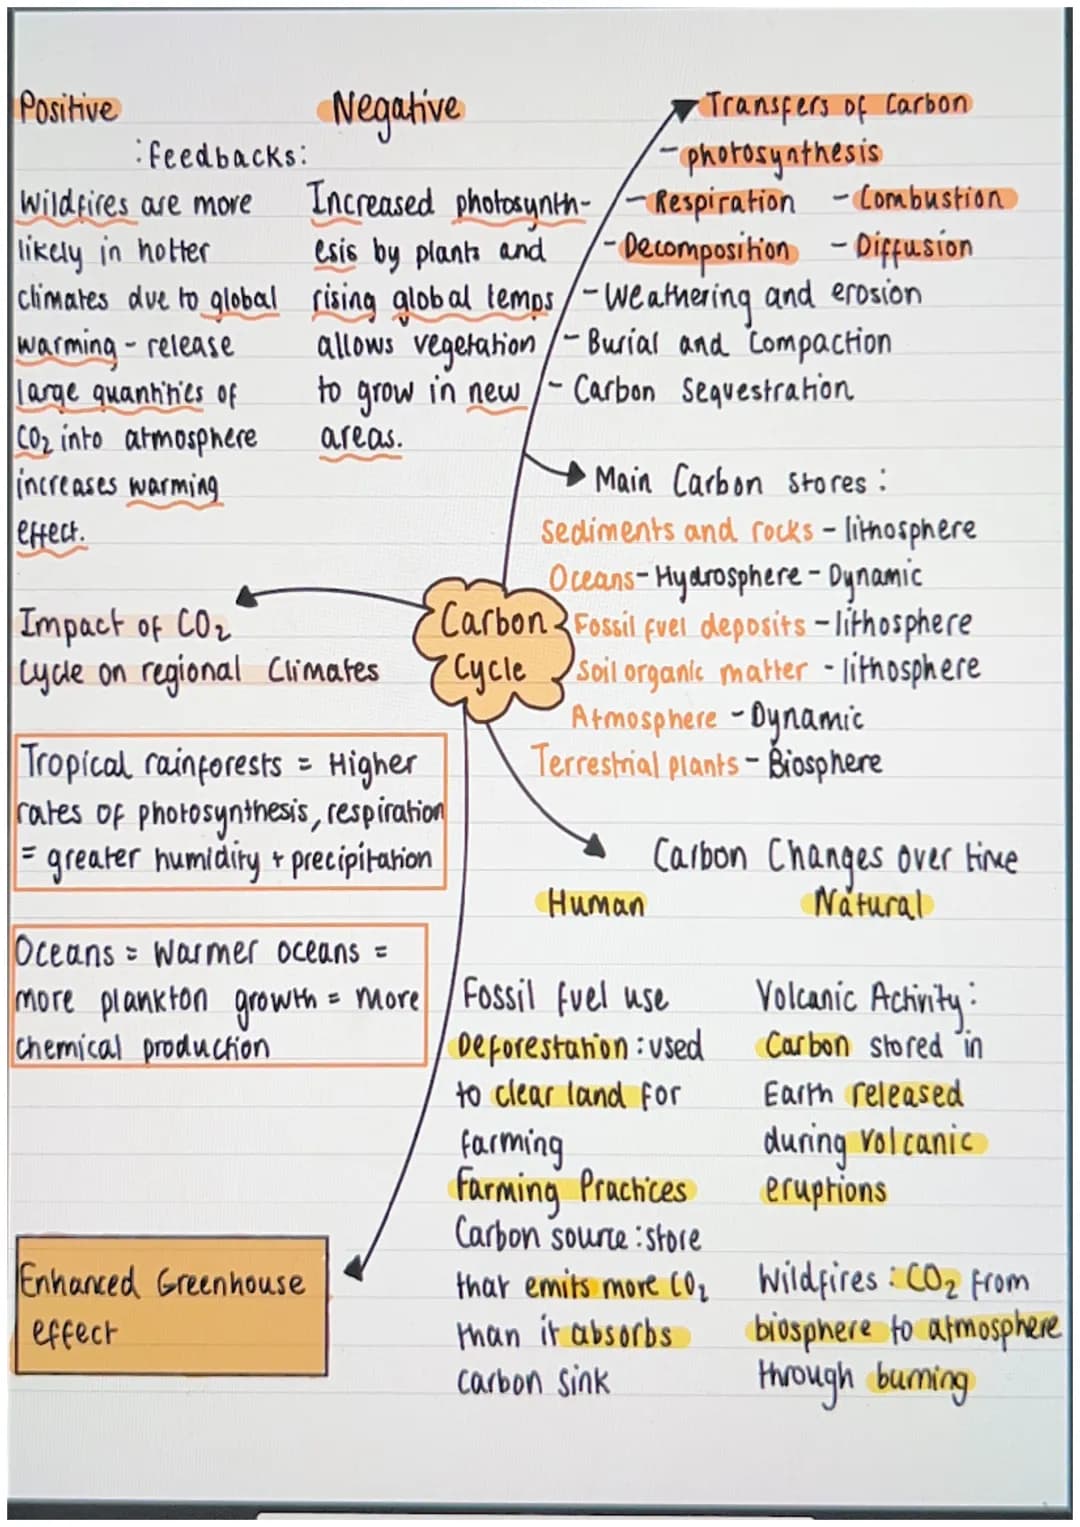 Positive
Negative
:feedbacks:
Wildfires are more
likely in hotter
climates due to global
warming - release
large quantities of
CO₂ into atmosphere
increases warming
effect.
Increased photosynth-
esis by plants and
rising global temps
allows vegetation
to grow in new
areas.
Transfers of Carbon
- photosynthesis
- Respiration - Combustion
- Decomposition - Diffusion
- Weathering and erosion
- Burial and Compaction
- Carbon Sequestration
Main Carbon stores:
Sediments and rocks - lithosphere
Oceans - Hydrosphere - Dynamic
Fossil fuel deposits - lithosphere
Soil organic matter - lithosphere
Atmosphere - Dynamic
Terrestrial plants - Biosphere
Carbon
Cycle
Impact of CO₂
Cycle on regional Climates
Tropical rainforests = Higher
rates of photosynthesis, respiration
= greater humidity + precipitation
Oceans = Warmer oceans =
more plankton growth = More
chemical production
Enhanced Greenhouse
effect
Carbon Changes over time
Human
Natural
Fossil fuel use
Deforestation: used
to clear land for
farming
Farming Practices
Carbon source: store
that emits more CO₂
than it absorbs
carbon sink
Volcanic Activity:
Carbon stored in
Earth released
during volcanic
eruptions
Wildfires: CO₂ from
biosphere to atmosphere
through burning